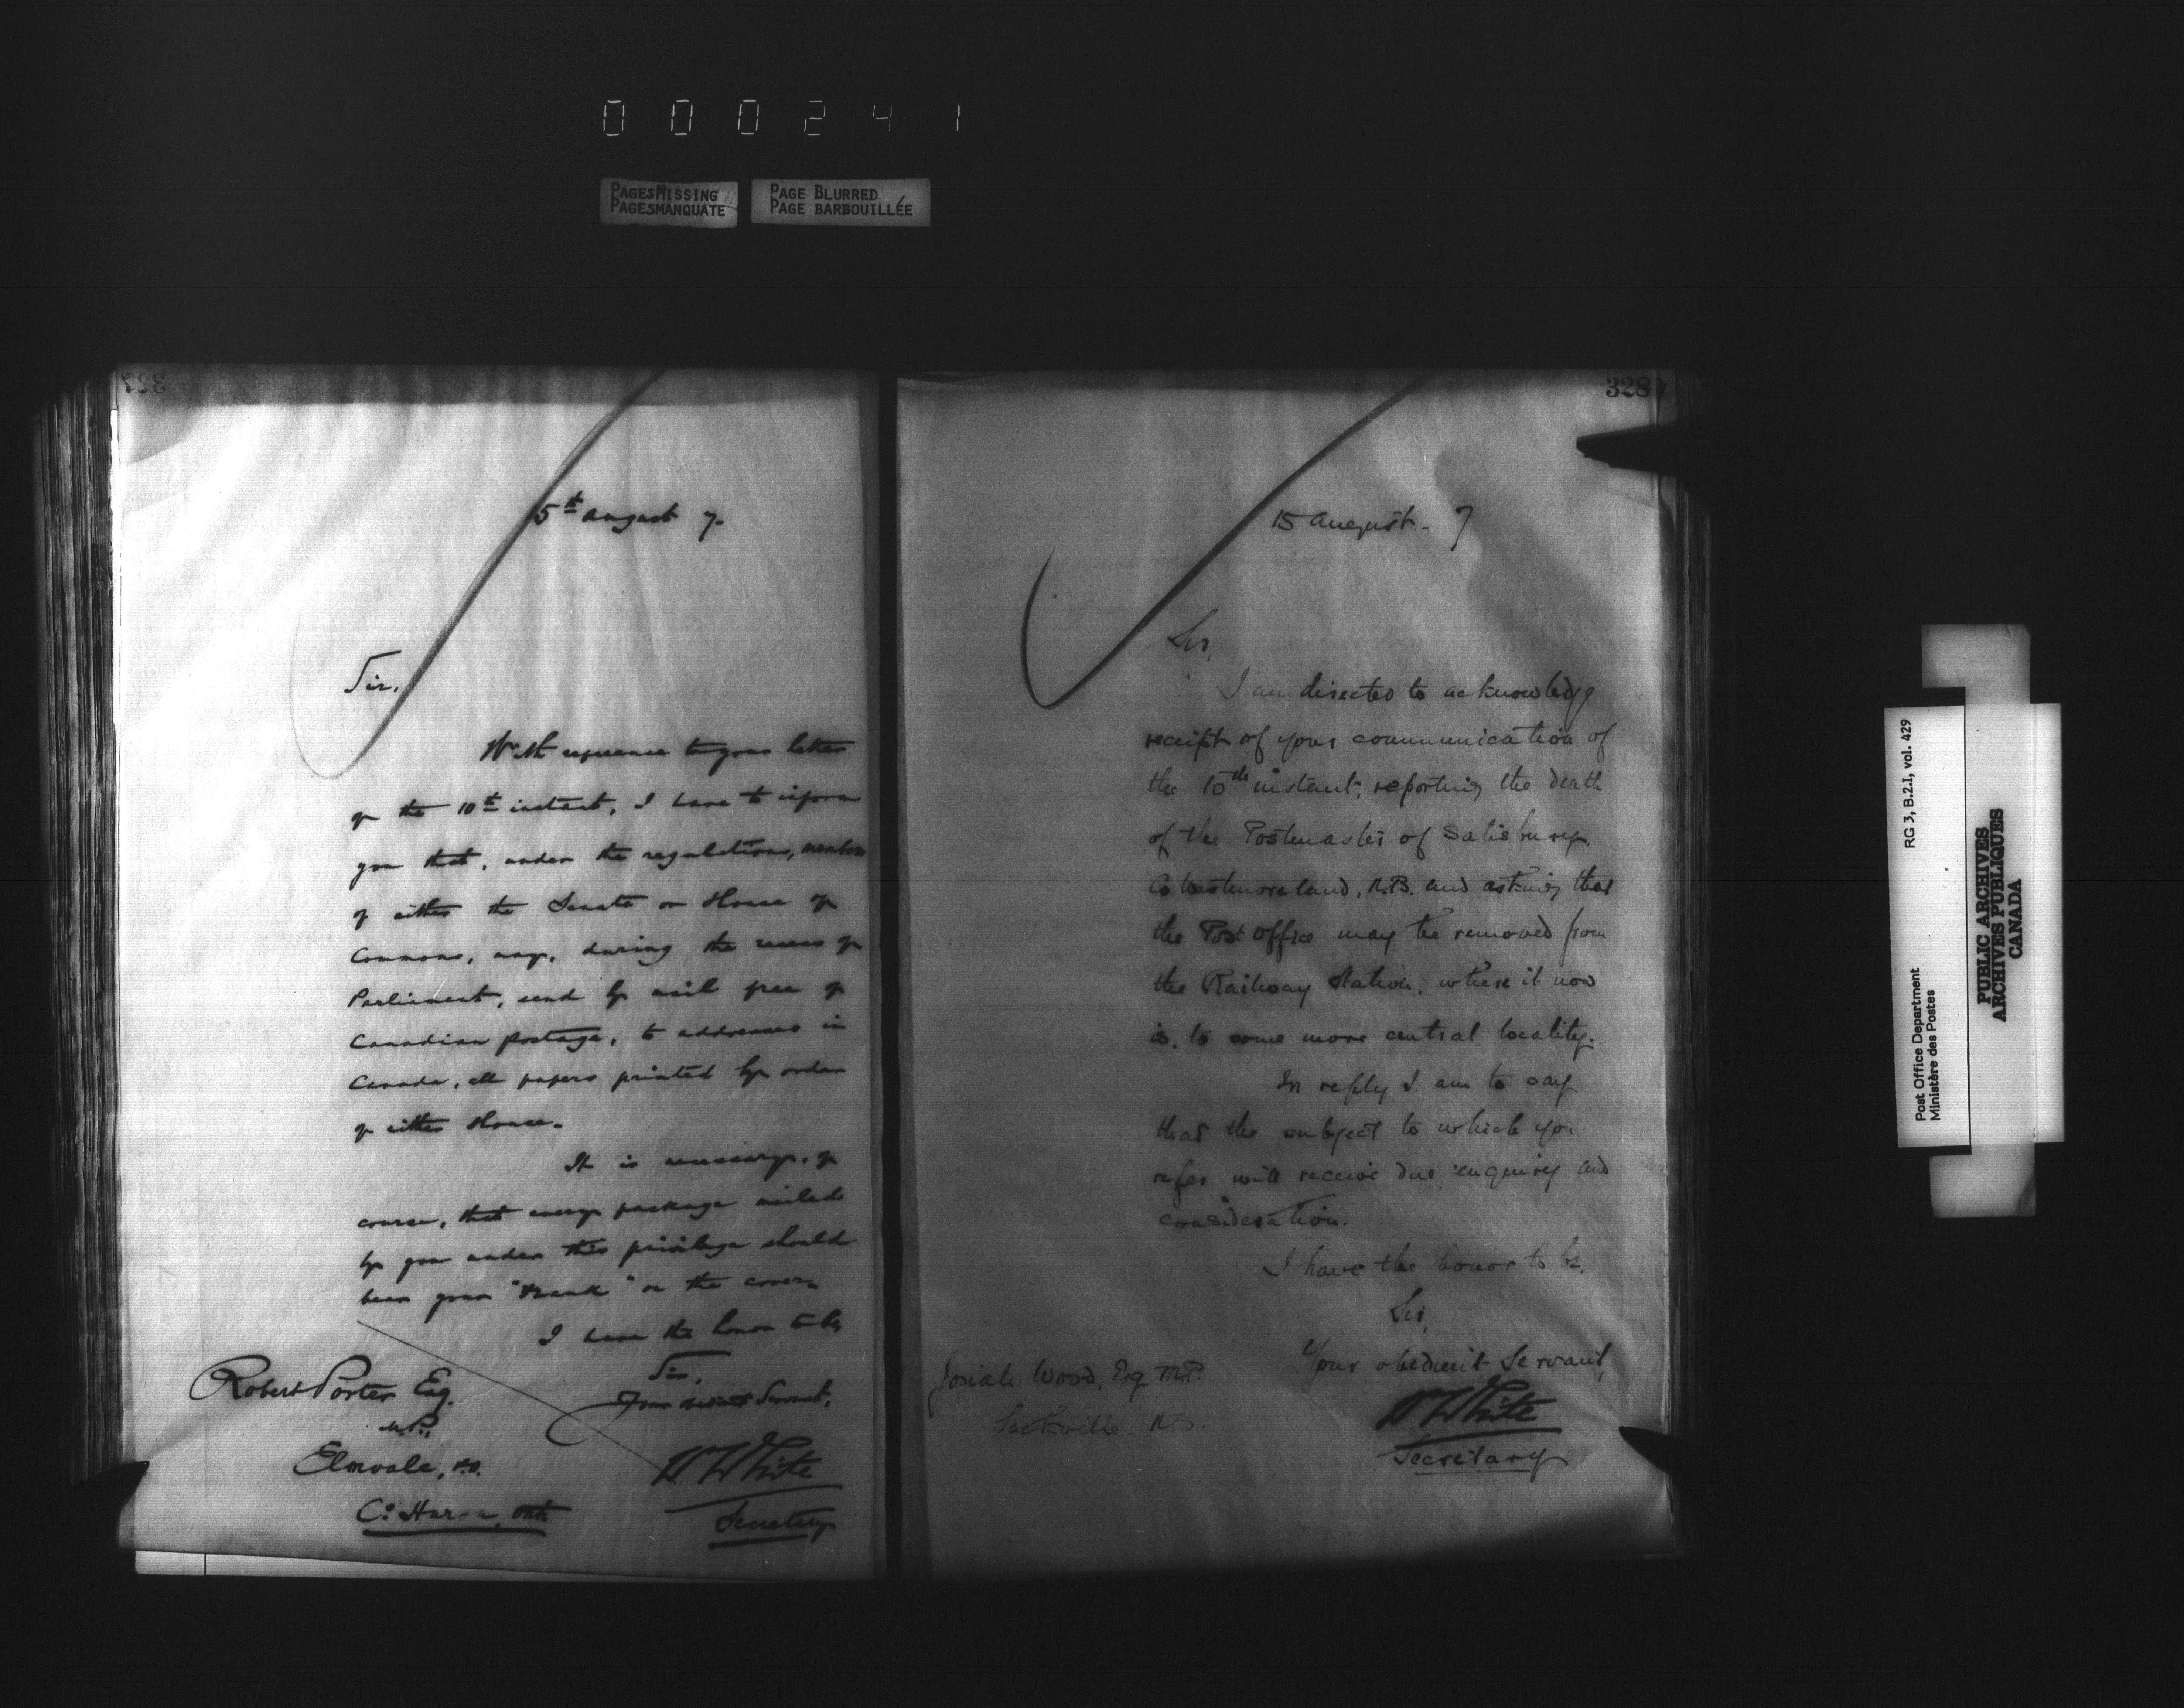 000241
PAGES MISSING
PAGES MANQUATE
PAGE BLURRED
PAGE BARBOUILLÉE
15th August 7.
Sir.
With reference to your letter
of the 10th instant, I have to inform
you that, under the regulations, members
of either the Senate or House of
Commons, may, during the recess of
Parliament, send by mail free of
Canadian postage, to addresses in
Canada, all papers printed by order
of either House.
It is necessary, of
course, that every package mailed
by you under this privilege should
bear your "Frank" on the cover.
I have the honor to be,
Sir,
Your obedient Servant,
W White
Secretary
Robert Porter Esq.
M.P.,
Elmvale, P.O.
Co. Huron, Ont.
328
15 August. 7
Sir,
I am directed to acknowledge
receipt of your communication of
the 10th instant, reporting the death
of the Postmaster of Salisbury,
Co. Westmoreland, N.B. and asking that
the Post Office may be removed from
the Railway Station, where it now
is, to some more central locality.
In reply I am to say
that the subject to which you
refer will receive due enquiry and
consideration.
I have the honor to be,
Sir,
Your obedient Servant,
W White
Secretary
Josiah Wood, Esq. M.P.
Sackville. N.B.
Post Office Department
Ministère des Postes
RG 3, B.2.I, vol. 429
PUBLIC ARCHIVES
ARCHIVES PUBLIQUES
CANADA